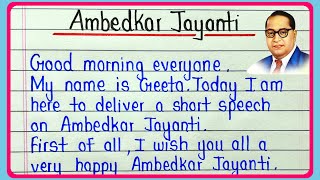 Ambedkar Jayanti
Good morning everyone.
My name is Geeta. Today I am
here to deliver a short speech
on Ambedkar Jayanti.
First of all, I wish you all a
very happy Ambedkar Jayanti.